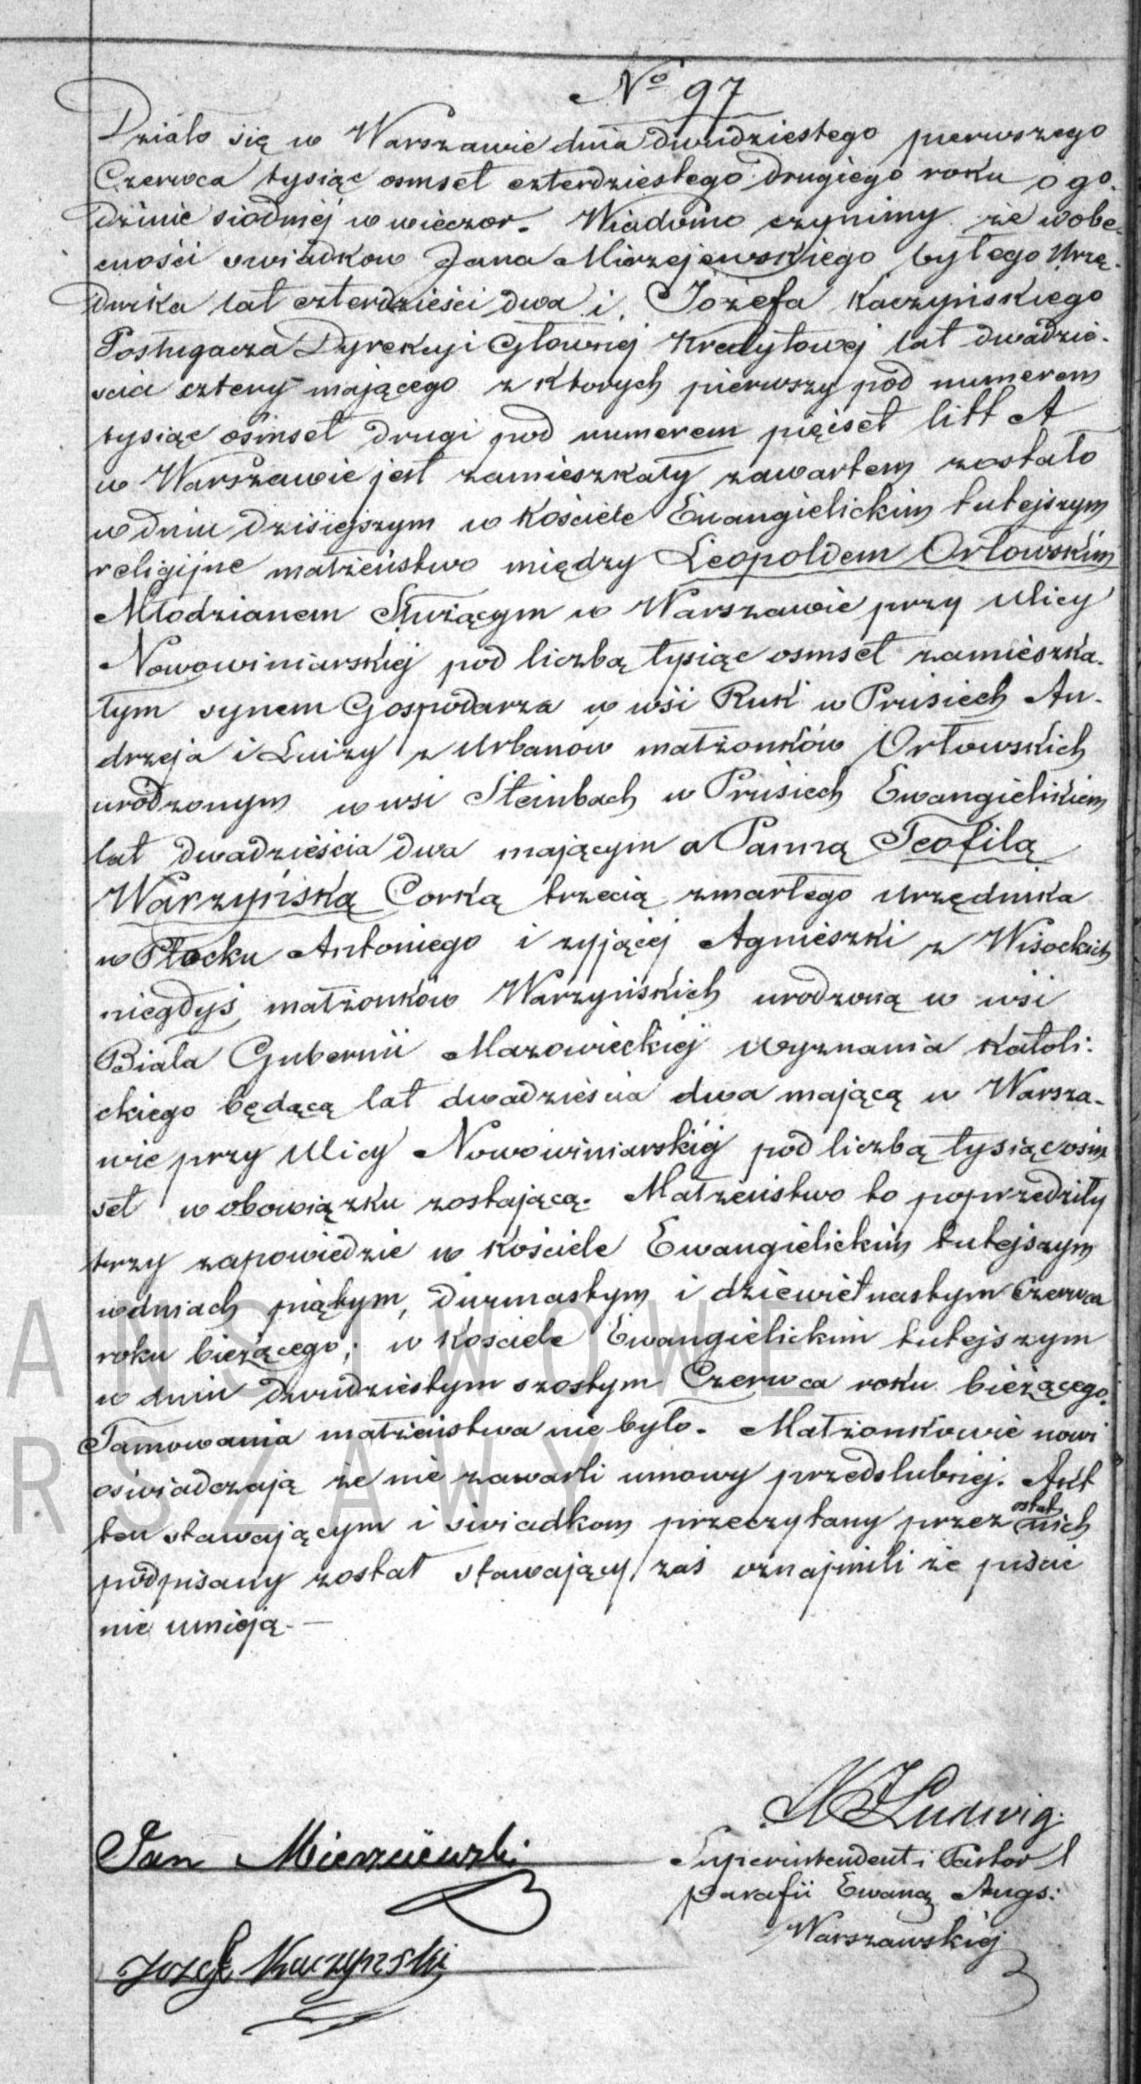 No 97
Działo się w Warszawie dnia dwudziestego pierwszego
Czerwca tysiąc osmset czterdziestego drugiego roku o go-
dzinie siodmej w wieczor. Wiadomo czynimy że w obe-
cności swiadkow Jana Mierzejewskiego byłego Urzę-
dnika lat czterdzieści dwa i Józefa Kaczyńskiego
Posługacza Dyrekcyi Głownej Kredytowej lat dwadzie-
scia cztery mającego z ktorych pierwszy pod numerem
tysiąc osmset drugi pod numerem pięiset litt A
w Warszawie jest zamieszkały zawartem zostało
w dniu dzisiejszym w Kościele Ewangielickim tutejszym
religijne małżeństwo między Leopoldem Orłowskim
Młodzianem Służącym w Warszawie przy Ulicy
Nowowiniarskiej pod liczbą tysiąc osmset zamieszka-
łym synem Gospodarza w wsi Ruk w Prusiech An-
drzeja i Luizy z Urbanów małżonków Orłowskich
urodzonym w wsi Steinbach w Prusiech Ewangielikiem
lat dwadzieścia dwa mającym a Panną Teofilą
Warzyńską Corką trzecią zmarłego Urzędnika
w Płocku Antoniego i żyjącej Agnieszki z Wisockich
niegdyś małżonków Warzyńskich urodzoną w wsi
Biała Gubernii Mazowieckiej wyznania Katoli-
ckiego będącą lat dwadzieścia dwa mającą w Warsza-
wie przy Ulicy Nowowiniarskiej pod liczbą tysiąc osm
set w obowiązku zostającą. Małżeństwo to poprzedziły
trzy zapowiedzie w Kościele Ewangielickim tutejszym
w dniach piątym, dwunastym i dziewiętnastym Czerwca
roku bieżącego; w Kościele Ewangielickim tutejszym
w dniu dwudziestym szostym Czerwca roku bieżącego.
Tamowania małżeństwa nie było. Małżonkowie nowi
oświadczają że nie zawarli umowy przedślubnej. Akt
ten stawającym i świadkom przeczytany przez ostatnich
podpisany został stawający zaś oznajmili że pisać
nie umieją. —
Jan Mierzeiewski
Jozef Kaczynski
Ludwig
Superintendent i Pastor
parafii Ewang Augs:
Warszawskiej